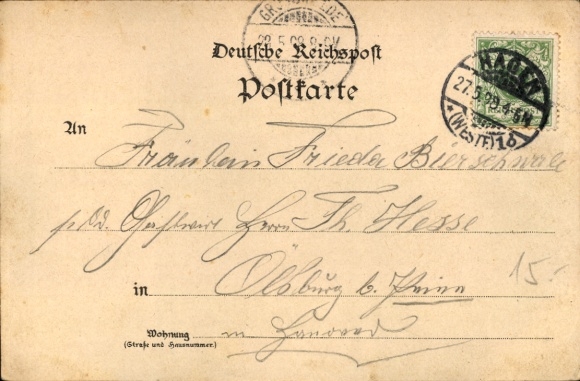 Deutsche Reichspost
Postkarte
HAGEN
27.5.99.4-5N
*(WESTF)1d
An Fräulein Frieda Bierschwale
p. Ad. Gastwirt Herrn Th. Hesse
in Ölsburg b. Peine
15.-
Wohnung in Hanover
(Straße und Hausnummer.)